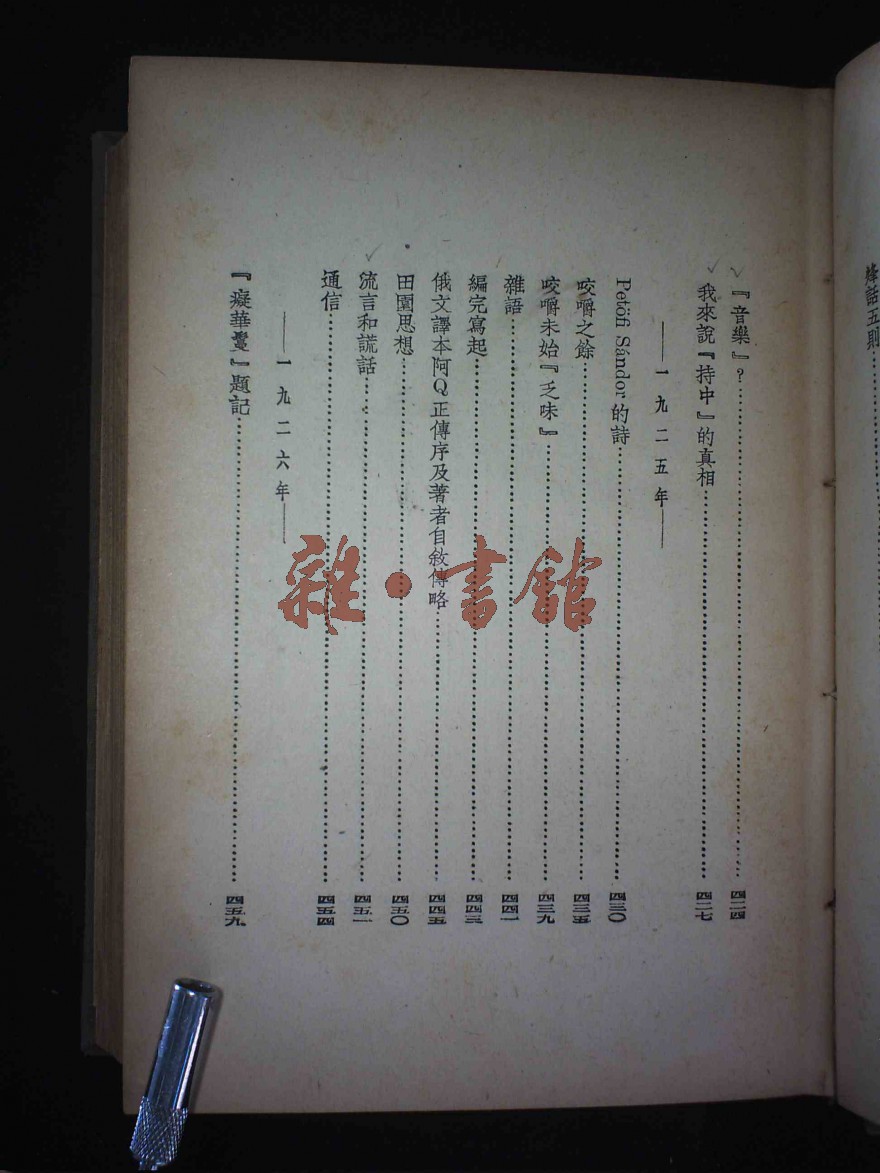 烽話五則
『音樂』？ 四二四
我來說『持中』的真相 四二七
——一九二五年——
Petöfi Sándor 的詩 四三〇
咬嚼之餘 四三五
咬嚼未始『乏味』 四三九
雜語 四四一
編完寫起 四四三
俄文譯本阿Q正傳序及著者自敘傳略 四四五
田園思想 四五〇
流言和謊話 四五一
通信 四五四
——一九二六年——
『癡華鬘』題記 四五九
雜·書館